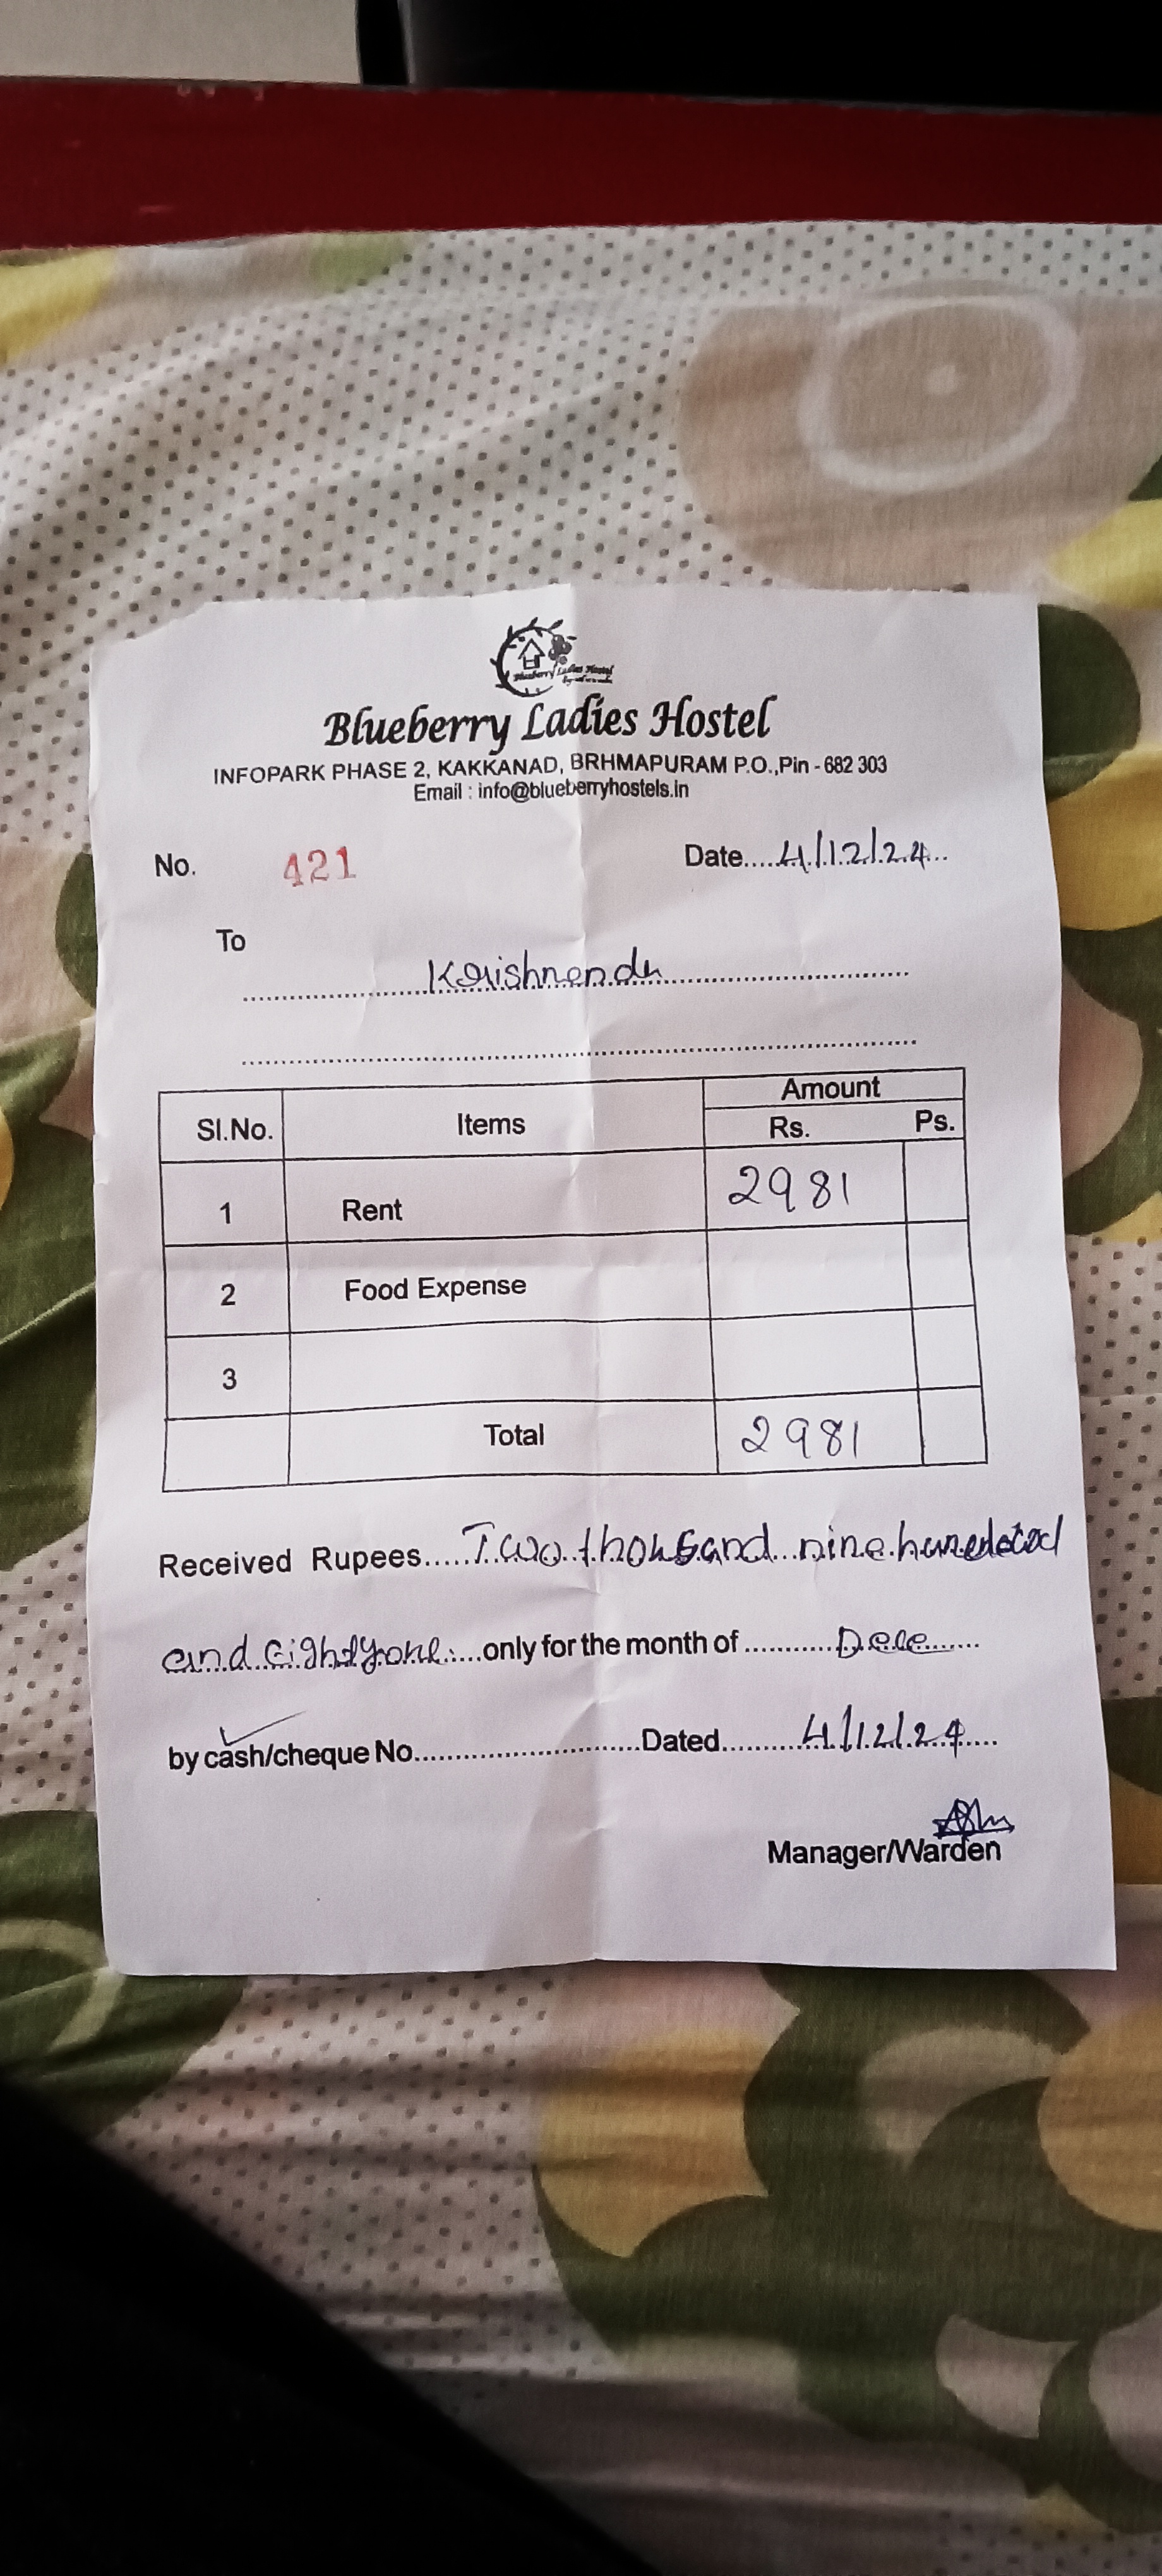 Blueberry Ladies Hostel
Blueberry Ladies Hostel
INFOPARK PHASE 2, KAKKANAD, BRHMAPURAM P.O.,Pin - 682 303
Email : info@blueberryhostels.in
No. 421 Date....4/12/24...
To
Krishnendu
Sl.No. Items Amount
Rs. Ps.
1 Rent 2981
2 Food Expense
3
Total 2981
Received Rupees.....Two thousand nine hundred
and eightyone.....only for the month of...........Dece......
by cash/cheque No............................Dated..........4/12/24....
Manager/Warden